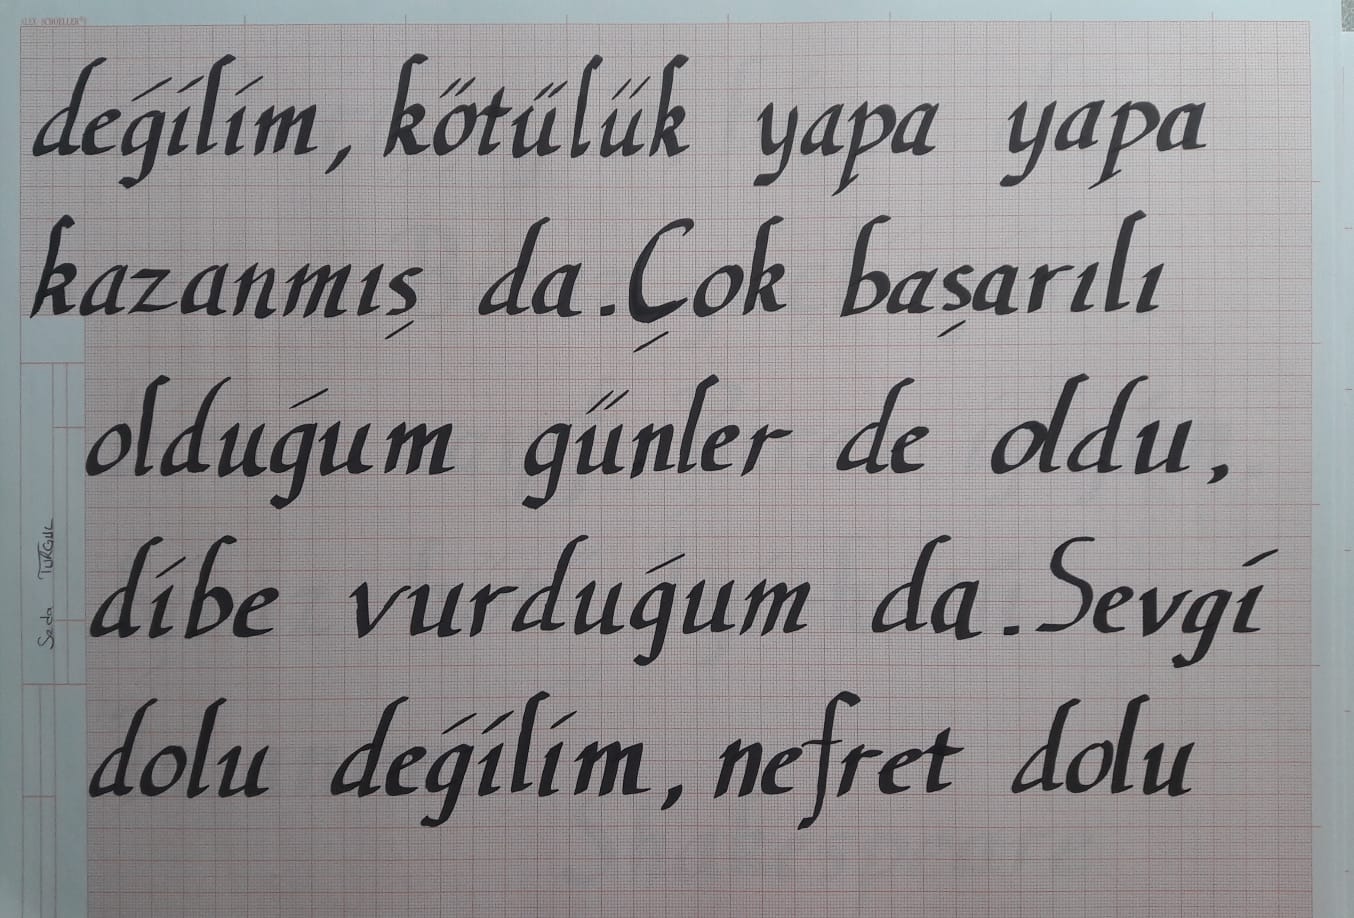 ALEX SCHOELLER
değilim, kötülük yapa yapa
kazanmış da. Çok başarılı
olduğum günler de oldu,
dibe vurduğum da. Sevgi
dolu değilim, nefret dolu
Seda TURGUL